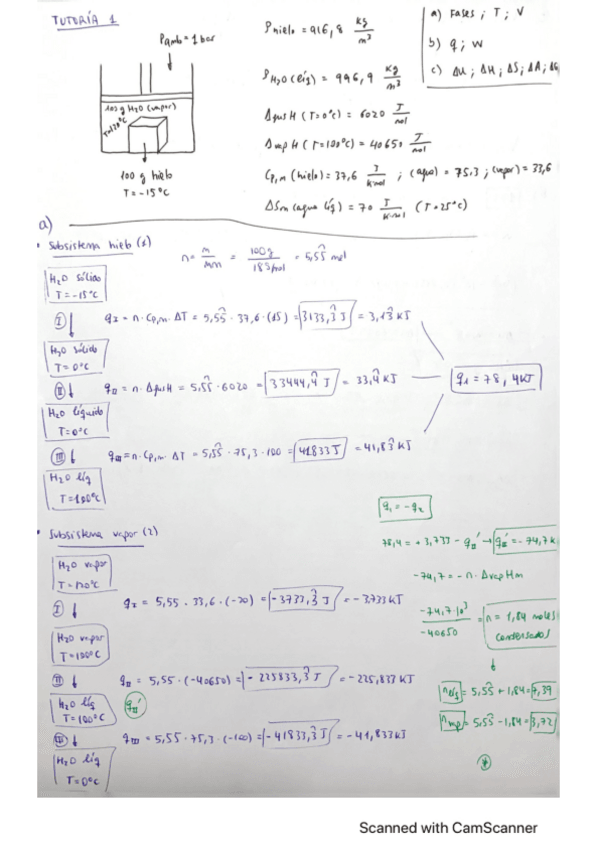 TUTORÍA 1
Pamb = 1 bar
100 g H2O (vapor)
T=120°C
100 g hielo
T = -15°C
ρhielo = 916,8 kg/m³
ρH2O (líq) = 996,9 kg/m³
ΔfusH (T=0°C) = 6020 J/mol
ΔvapH (T=100°C) = 40650 J/mol
Cp,m (hielo) = 37,6 J/K·mol ; (agua) = 75,3 ; (vapor) = 33,6
ΔSm (agua líq) = 70 J/K·mol (T=25°C)
a) Fases ; T ; V
b) q ; w
c) ΔU ; ΔH ; ΔS ; ΔA ;
a)
• Subsistema hielo (1)
n = m/mm = 100g / 18g/mol = 5,55 mol
H2O sólido
T = -15°C
I ↓ qI = n · Cp,m · ΔT = 5,55 · 37,6 · (15) = 3133,3 J = 3,13 KJ
H2O sólido
T = 0°C
II ↓ qII = n · ΔfusH = 5,55 · 6020 = 33444,4 J = 33,4 KJ
q1 = 78,4 KJ
H2O líquido
T = 0°C
III ↓ qIII = n · Cp,m · ΔT = 5,55 · 75,3 · 100 = 41833 J = 41,83 KJ
H2O líq
T = 100°C
• Subsistema vapor (2)
H2O vapor
T = 120°C
I ↓ qI = 5,55 · 33,6 · (-20) = -3733,3 J = -3,733 KJ
H2O vapor
T = 100°C
II ↓ qII = 5,55 · (-40650) = -225833,3 J = -225,833 KJ
H2O líq
T = 100°C
qII'
III ↓ qIII = 5,55 · 75,3 · (-100) = -41833,3 J = -41,833 KJ
H2O líq
T = 0°C
q1 = -q2
78,4 = + 3,733 - qII' → qII' = -74,7 K
-74,7 = -n · ΔvapHm
-74,7·10³ / -40650 = n = 1,84 moles condensados
nlíq = 5,55 + 1,84 = 7,39
nvap = 5,55 - 1,84 = 3,72
*
Scanned with CamScanner